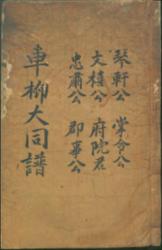 琴軒公 掌令公
文公 府院君
忠肅公 郡事公
車柳大同譜